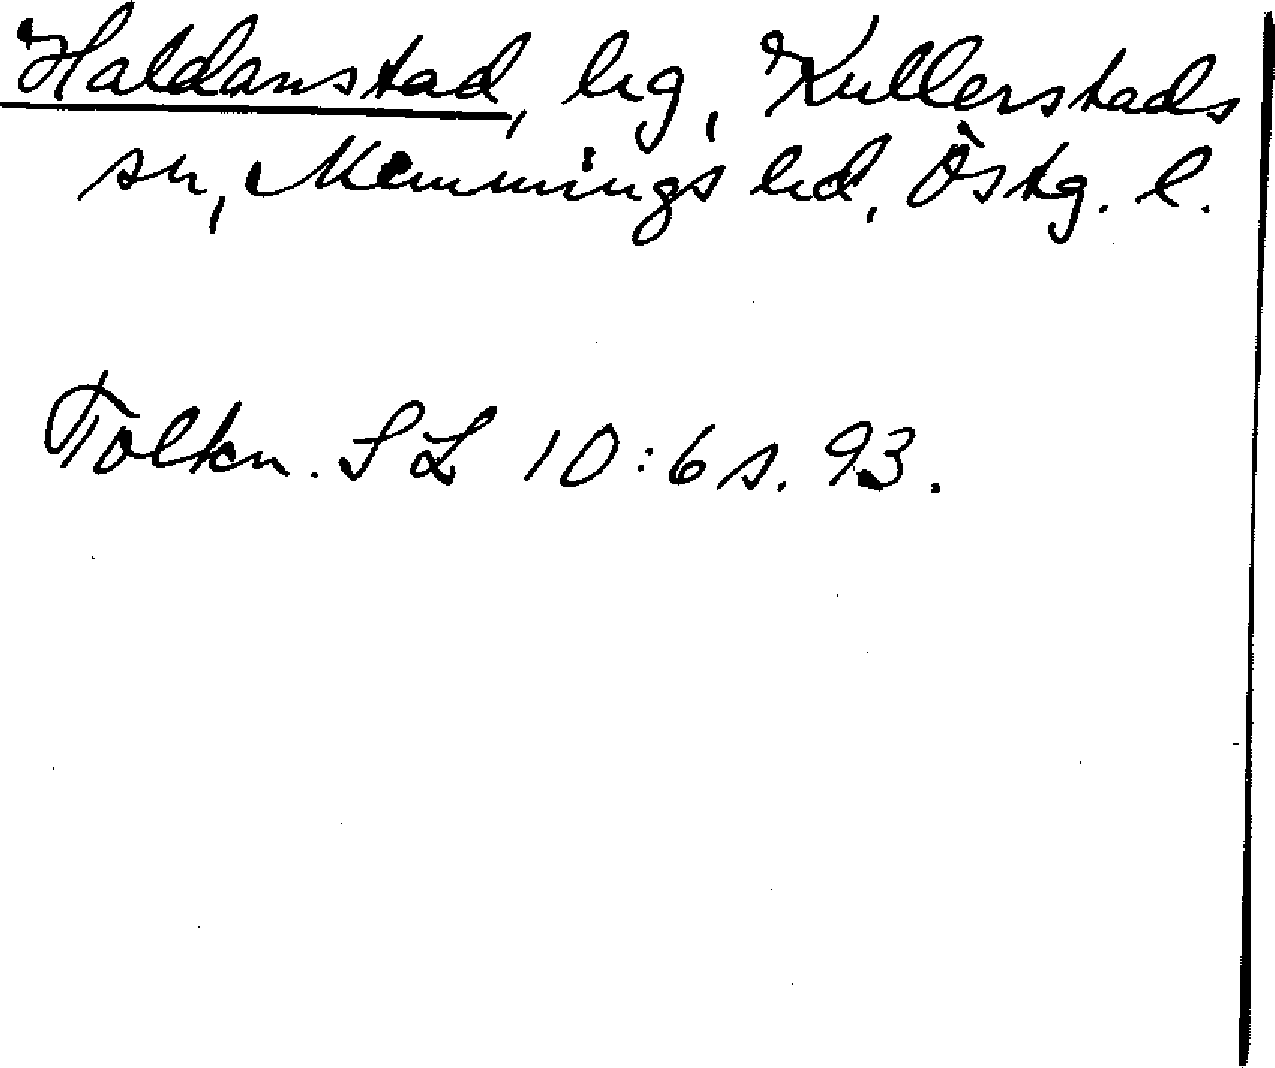 Haldanstad, hg, Kullerstads
sn, Memmings hd, Östg. l.
Tolkn. SL 10:6 s. 93.